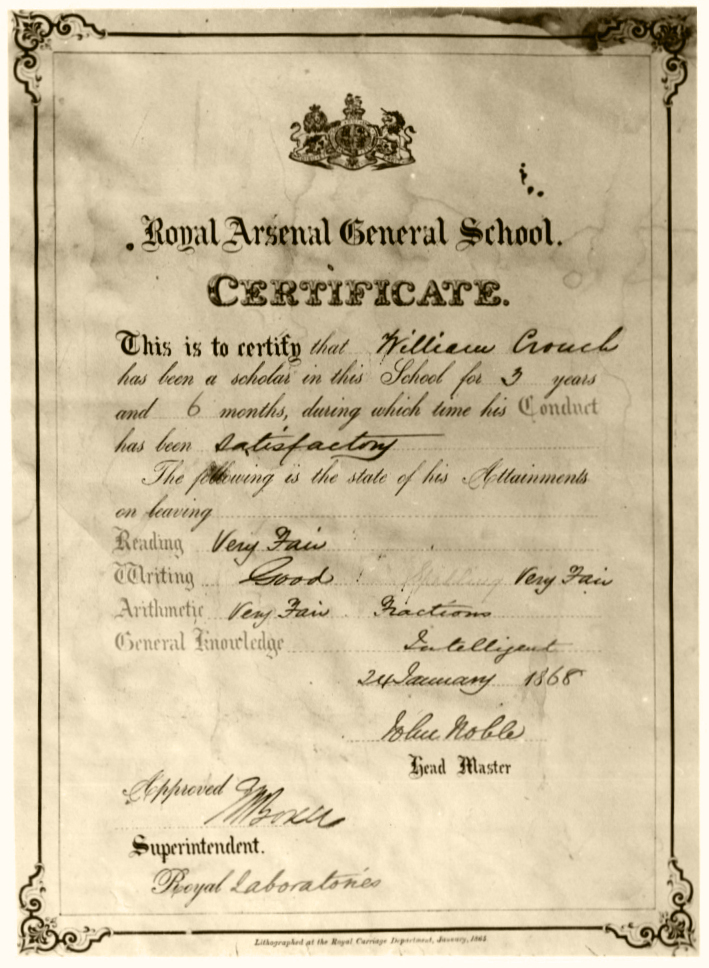 Royal Arsenal General School.
CERTIFICATE.
This is to certify that William Crouch
has been a scholar in this School for 3 years
and 6 months, during which time his Conduct
has been satisfactory
The following is the state of his Attainments
on leaving
Reading Very Fair
Writing Good Spelling Very Fair
Arithmetic Very Fair Fractions
General Knowledge Intelligent
24 January 1868
John Noble
Head Master
Approved
Superintendent.
Royal Laboratories
Lithographed at the Royal Carriage Department, January,